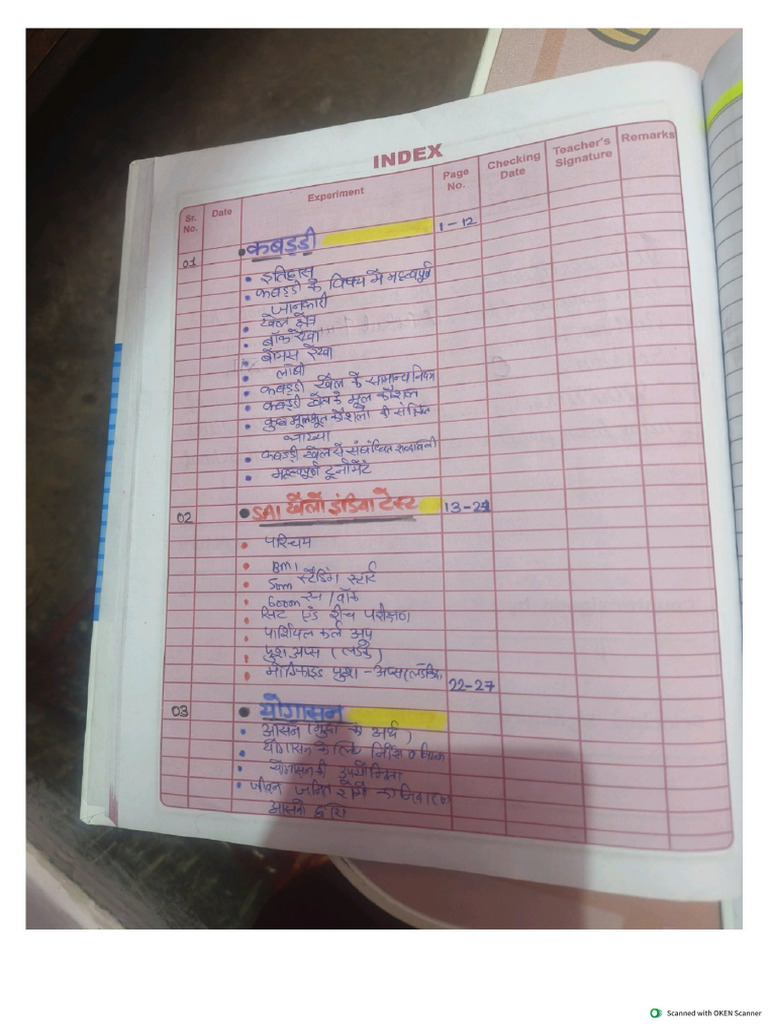 INDEX
Sr. No. Date Experiment Page No. Checking Date Teacher's Signature Remarks
01 • कबड्डी 1-12
• इतिहास
• कबड्डी के विषय में महत्वपूर्ण
जानकारी
• खेल क्षेत्र
• बॉक रेखा
• बोनस रेखा
• लोबी
• कबड्डी खेल के सामान्य नियम
• कबड्डी खेल के मूल कौशल
• कुछ मूलभूत कौशलो की संक्षिप्त
व्याख्या
• कबड्डी खेल से संबंधित शब्दावली
• महत्वपूर्ण टूर्नामेंट
02 • SAI खेलों इंडिया टेस्ट 13-21
• परिचय
• BMI
• 50m स्टैंडिंग स्टार्ट
• 600m रन / वॉक
• सिट एंड रीच परीक्षण
• पार्शियल कर्ल अप
• पुश अप्स (लड़के)
• मोडिफाइड पुश-अप्स (लड़किया)
22-27
03 • योगासन
• आसन (मुद्रा के अर्थ)
• योगासन के लिए निर्देश व
• योगासन की उपयोगिता
• जीवन जनित रोगों का निवारण
आसनों द्वारा
Scanned with OKEN Scanner